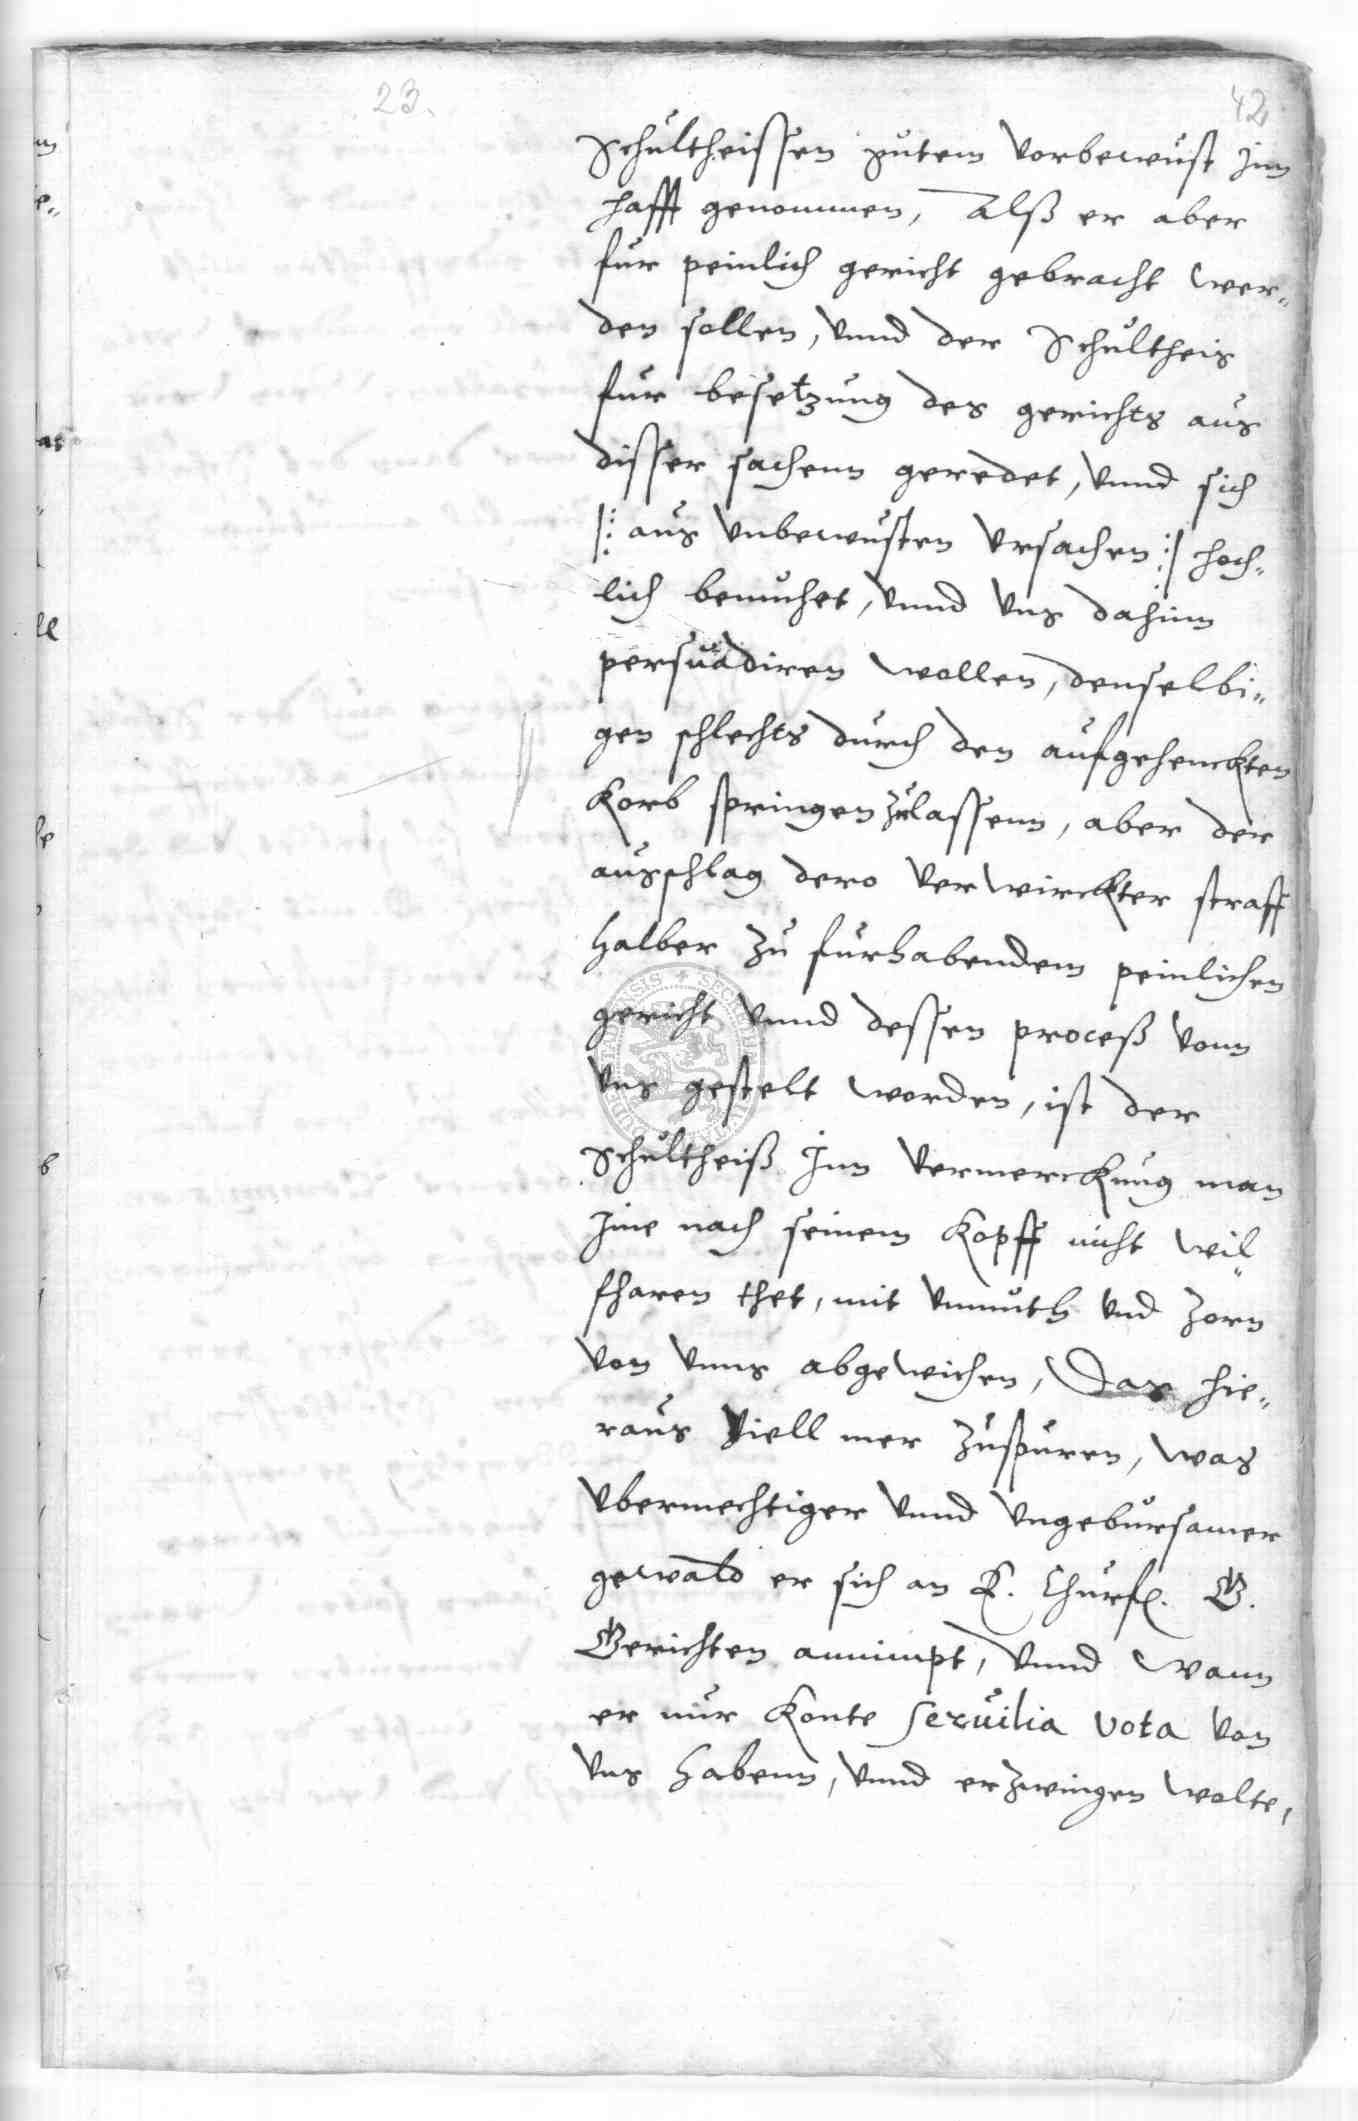 23.
42
Schultheissen gutem vorbewust inn
hafft genommen, Alß er aber
fur peinlich gericht gebracht wer„
den sollen, vnnd der Schultheis
fur besetzung des gerichts aus
disser sachenn geredet, vnnd sich
|: aus vnbewusten vrsachen :| hoch„
lich bemuhet, vnnd vns dahinn
persuadiren wollen, denselbi„
gen schlechts durch den aufgehenckten
Korb springen zulassenn, aber der
ausschlag dero verwirckter straff
halber zu furhabendem peinlichen
gericht vnnd dessen proceß vonn
vns gestelt worden, ist der
Schultheiß inn vermerckung man
ime nach seinem Kopff nicht wil„
fharen thet, mit vnmuth vnd zorn
von vnns abgewichen, Das hie„
raus viell mer zuspuren, was
vbermechtiger vnnd vngebursamer
gewald er sich an E. Churf. G.
Gerichten annimpt, vnnd wann
er nur Konte seruilia vota von
vns habenn, vnnd erzwingen wolte,